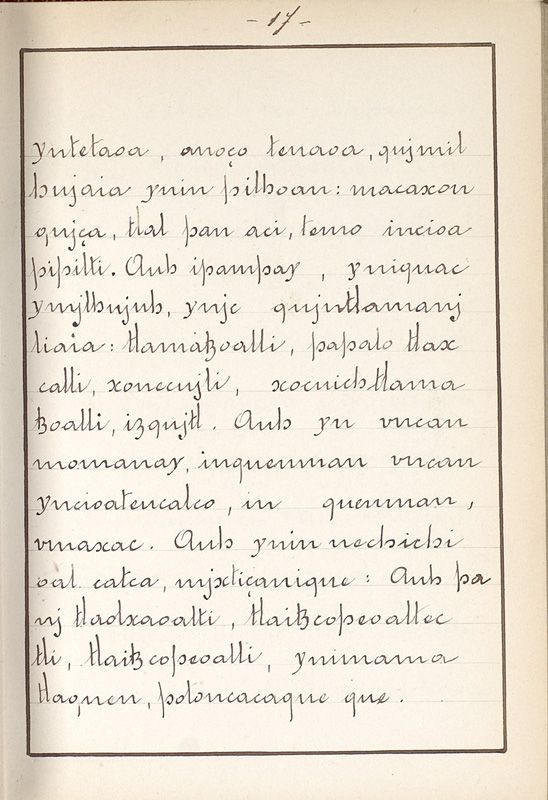 - 17 -
yntetaoa, anoço tenaoa, qujmil
hujaia ynin pilhoan: macaxon
qujça, tlal pan aci, temo incioa
pipilti. Auh ipampay, yniquac
ymjlhujuh, ynjc qujntlamanj
liaia: tlamatzoalli, papalo tlax
calli, xonecujli, xocuichtlama
tzoalli, izqujtl. Auh yn vncan
momanay, inquenman vncan
yncioateucalco, in quenman,
vmaxac. Auh ynin nechichi
oal catca, mjxtiçanique: Auh pa
nj tlaolxaoalti, tlaitzcopeoaltec
tli, tlaitzcopeoalli, ynimama
tlaquen, poloncacaque que.